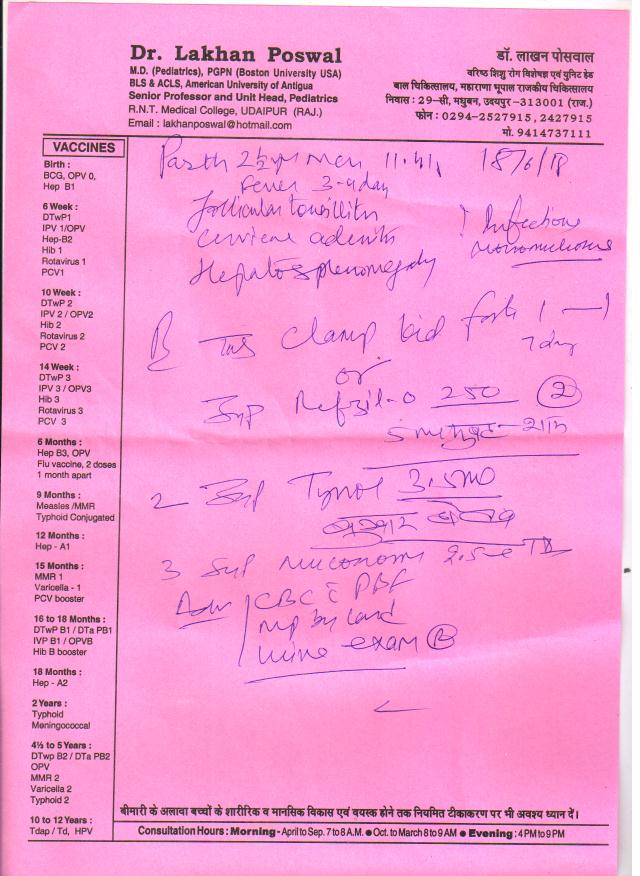 Dr. Lakhan Poswal
M.D. (Pediatrics), PGPN (Boston University USA)
BLS & ACLS, American University of Antigua
Senior Professor and Unit Head, Pediatrics
R.N.T. Medical College, UDAIPUR (RAJ.)
Email : lakhanposwal@hotmail.com
डॉ. लाखन पोसवाल
वरिष्ठ शिशु रोग विशेषज्ञ एवं युनिट हेड
बाल चिकित्सालय, महाराणा भूपाल राजकीय चिकित्सालय
निवास : 29-सी, मधुबन, उदयपुर-313001 (राज.)
फोन : 0294-2527915, 2427915
मो. 9414737111
VACCINES
Birth :
BCG, OPV 0,
Hep B1
6 Week :
DTwP1
IPV 1/OPV
Hep-B2
Hib 1
Rotavirus 1
PCV1
10 Week :
DTwP 2
IPV 2 / OPV2
Hib 2
Rotavirus 2
PCV 2
14 Week :
DTwP 3
IPV 3 / OPV3
Hib 3
Rotavirus 3
PCV 3
6 Months :
Hep B3, OPV
Flu vaccine, 2 doses
1 month apart
9 Months :
Measles /MMR
Typhoid Conjugated
12 Months :
Hep - A1
15 Months :
MMR 1
Varicella - 1
PCV booster
16 to 18 Months :
DTwP B1 / DTa PB1
IVP B1 / OPVB
Hib B booster
18 Months :
Hep - A2
2 Years :
Typhoid
Meningococcal
4½ to 5 Years :
DTwp B2 / DTa PB2
OPV
MMR 2
Varicella 2
Typhoid 2
10 to 12 Years :
Tdap / Td, HPV
Parth 2½ yr 11.4 18/6/18
Fever 3-4 day
follicular tonsillitis
cervical adenitis
Hepatosplenomegaly
? Infectious
mononucleosis
Clamp bid forte 1 — 1
7 day
or
Syp Refzil-O 250 ②
5
2 Syp 3.5 ml
3 Syp 2.5
Adv CBC c PBF
MP by card
Urine exam
बीमारी के अलावा बच्चों के शारीरिक व मानसिक विकास एवं वयस्क होने तक नियमित टीकाकरण पर भी अवश्य ध्यान दें।
Consultation Hours : Morning - April to Sep. 7 to 8 A.M. ● Oct. to March 8 to 9 AM ● Evening : 4 PM to 9 PM